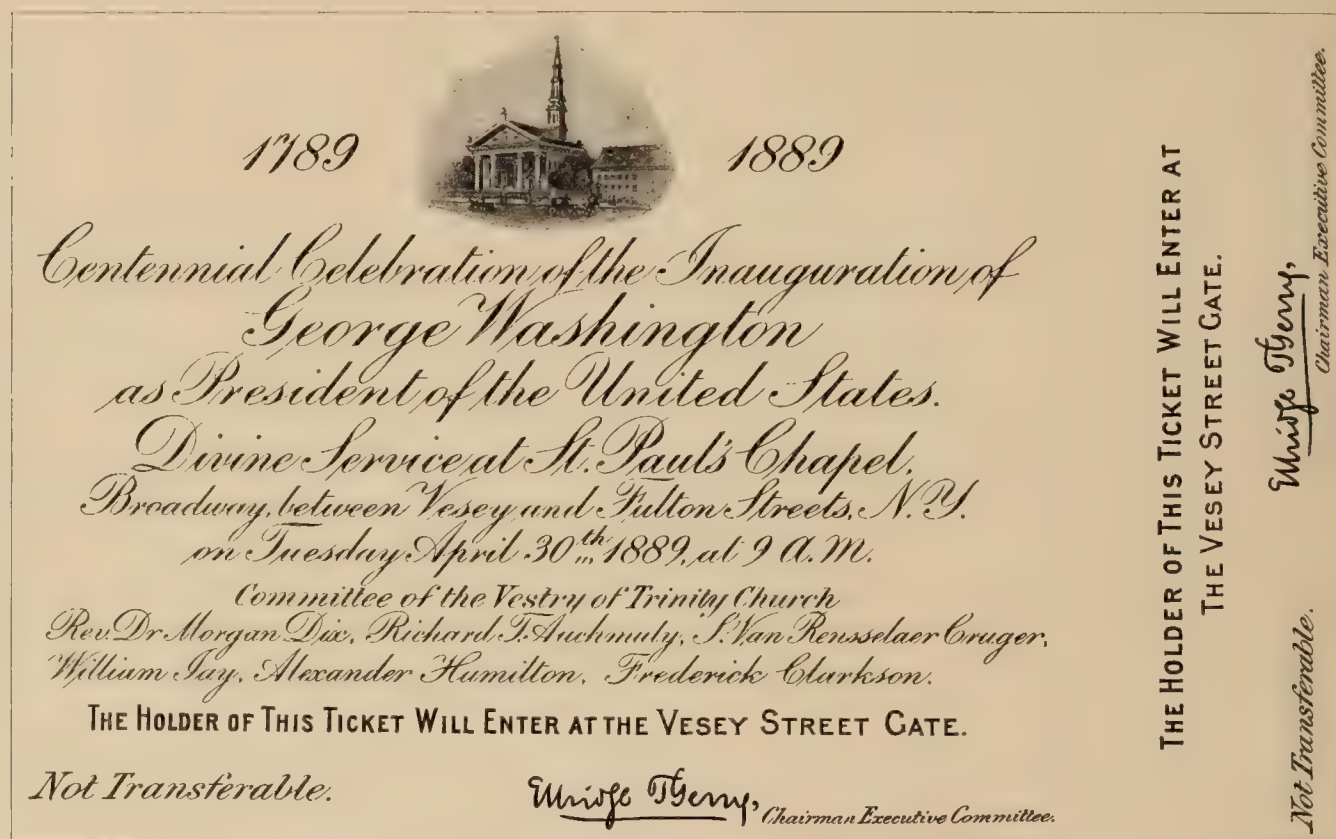 1789 1889
Centennial Celebration of the Inauguration of
George Washington
as President of the United States.
Divine Service at St. Paul's Chapel.
Broadway, between Vesey and Fulton Streets, N.Y.
on Tuesday April 30th 1889, at 9 A.M.
Committee of the Vestry of Trinity Church
Rev. Dr Morgan Dix, Richard T. Auchmuty, S. Van Rensselaer Cruger,
William Jay, Alexander Hamilton, Frederick Clarkson.
THE HOLDER OF THIS TICKET WILL ENTER AT THE VESEY STREET GATE.
Not Transferable. Elbridge T Gerry, Chairman Executive Committee.
THE HOLDER OF THIS TICKET WILL ENTER AT
THE VESEY STREET GATE.
Not Transferable. Elbridge T Gerry,
Chairman Executive Committee.